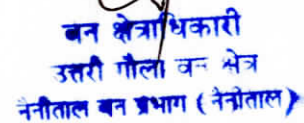 वन क्षेत्राधिकारी
उत्तरी गौला वन क्षेत्र
नैनीताल वन प्रभाग (नैनीताल)